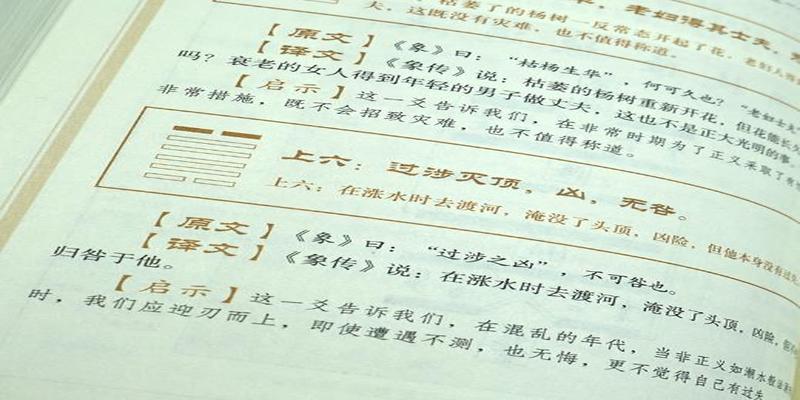 老妇得其士夫,
枯萎了的杨树一反常态开起了花,老妇人
夫,这既没有灾难,也不值得称道。
【原文】《象》曰:“枯杨生华”,何可久也?“老妇士夫”
【译文】《象传》说:枯萎的杨树重新开花,但花能长久
吗?衰老的女人得到年轻的男子做丈夫,这也不是正大光明的事。
【启示】这一爻告诉我们,在非常时期为了正义采取了
非常措施,既不会招致灾难,也不值得称道。
上六:过涉灭顶,凶,无咎。
上六:在涨水时去渡河,淹没了头顶,凶险,但他本身没有过失
【原文】《象》曰:“过涉之凶”,不可咎也。
【译文】《象传》说:在涨水时去渡河,淹没了头顶,凶险,
归咎于他。
【启示】这一爻告诉我们,在混乱的年代,当非正义如潮水般
时,我们应迎刃而上,即使遭遇不测,也无悔,更不觉得自己有过失